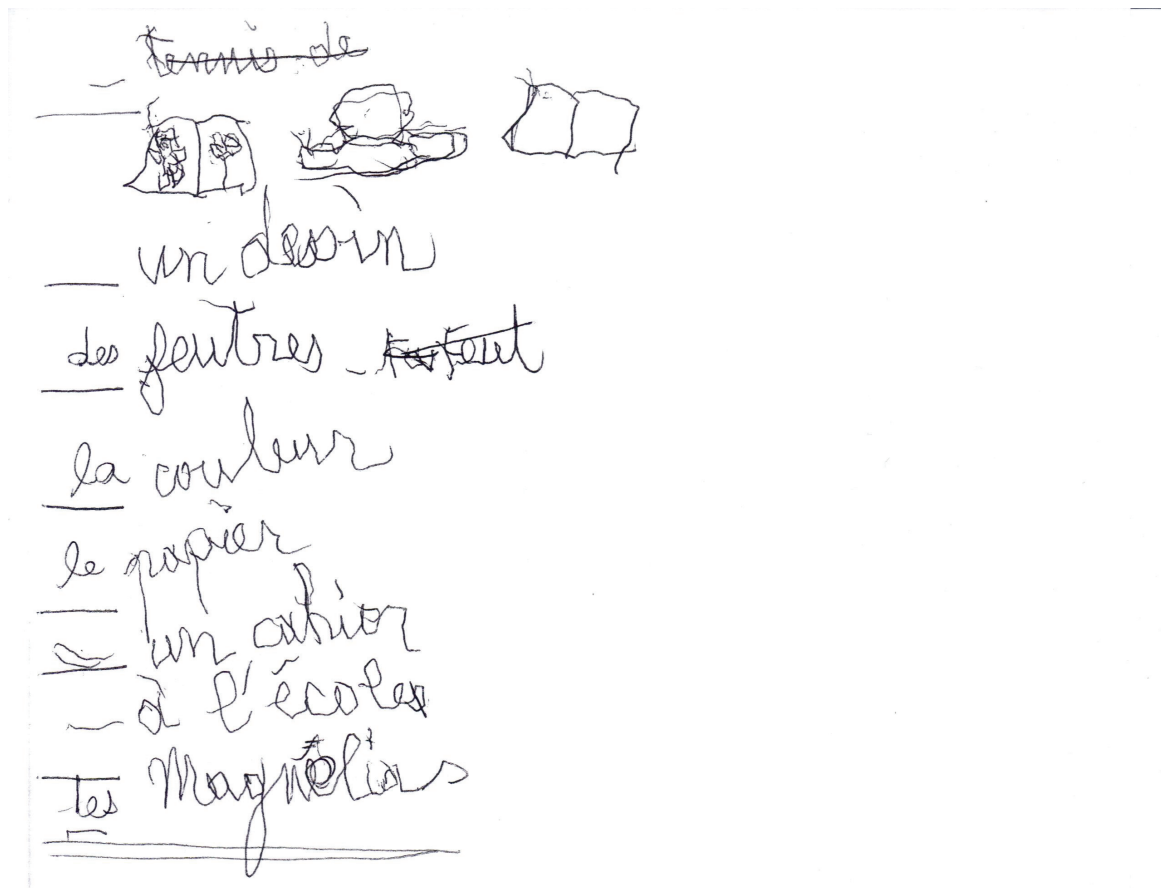 tennis de
un dessin
des feutres
la couleur
le papier
un cahier
à l'école
tes Magnolias